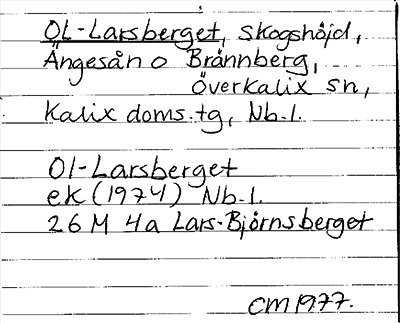 OL-Larsberget, skogshöjd,
Ängesån o Brännberg,
Överkalix sn,
Kalix doms.tg, Nb.l.
Ol-Larsberget
ek (1974) Nb.l.
26 M 4a Lars-Björnsberget
CM 1977.